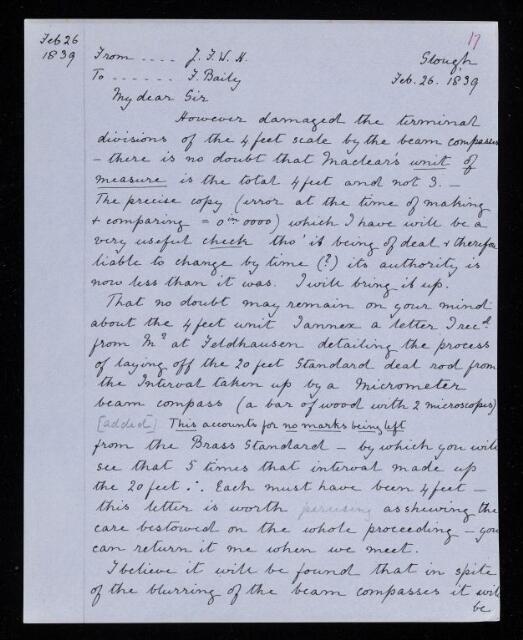 Feb 26
1839
17
From .... J. F. W. H.
Slough
To ...... F. Baily
Feb. 26. 1839
My dear Sir
However damaged the terminal
divisions of the 4 feet scale by the beam compasses
- there is no doubt that Maclear's unit of
measure is the total 4 feet and not 3. -
The precise copy (error at the time of making
+ comparing = 0 in. 0000) which I have will be a
very useful check tho' it being of deal + therefore
liable to change by time (?) its authority is
now less than it was. I will bring it up.
That no doubt may remain on your mind
about the 4 feet unit I annex a letter I recd.
from Mr. at Feldhausen detailing the process
of laying off the 20 feet Standard deal rod from
the Interval taken up by a Micrometer
beam compass (a bar of wood with 2 microscopes)
[added] This accounts for no marks being left
from the Brass Standard - by which you will
see that 5 times that interval made up
the 20 feet ∴ Each must have been 4 feet -
this letter is worth perusing as shewing the
care bestowed on the whole proceeding - you
can return it me when we meet.
I believe it will be found that in spite
of the blurring of the beam compasses it will
be